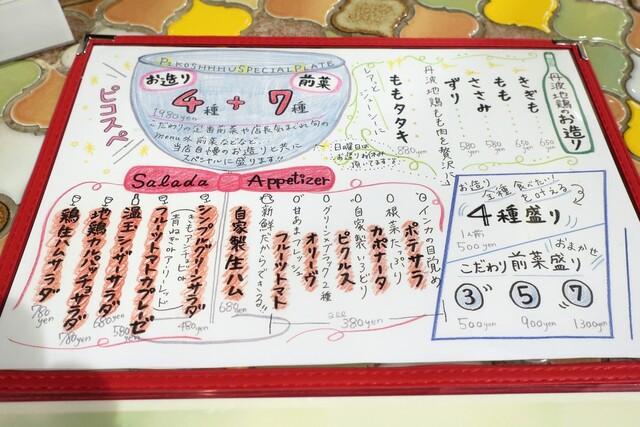 P2KOSHHHU SPECIAL PLATE
ピコスペ
お造り 前菜
4種 + 7種
1980yen
こだわりの定番前菜や店長気まぐれ旬の
menu外前菜などなど、
当店自慢のお造りと共に
スペシャルに盛ります!!
日曜日は
お造りお休み
頂いてます
丹波地鶏のお造り
きぎも 650yen
もも 650yen
ささみ 580yen
ずり 580yen
丹波地鶏もも肉を贅沢に
ももタタキ 880yen
Salada Appetizer
インカの目覚め
ポテサラ
根菜たっぷり
カポナータ
自家製いろどり
ピクルス
グリーン×ブラック2種
オリーヴ
甘あまフレッシュ
フルーツトマト
all 380yen
新鮮だからできる!!
自家製生ハム
680yen
シンプルグリーンサラダ
480yen
きもアンチョビor
青ねぎorアリ・レッド
フルーツトマトカプレーゼ
580yen
温玉シーザーサラダ
680yen
地鶏カルパッチョサラダ
780yen
鶏生ハムサラダ
780yen
お造り全種食べたい!
を叶える
4種盛り
1人前
500yen
おまかせ
こだわり前菜盛り
3 5 7
500yen 900yen 1300yen